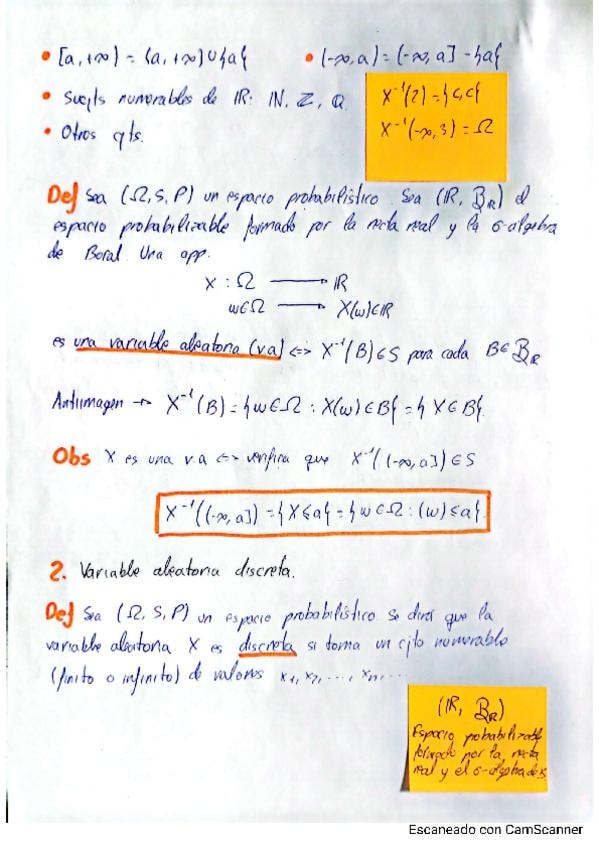 • [a, +∞) = (a, +∞) ∪ {a}
• (-∞, a) = (-∞, a] - {a}
• Sucjts numerables de IR: IN, Z, Q
• Otros cjts.
X⁻¹(2) = {c,c}
X⁻¹(-∞, 3) = Ω
Def Sea (Ω, S, P) un espacio probabilístico. Sea (IR, B_R) el
espacio probabilizable formado por la recta real y la σ-algebra
de Borel. Una app.
X : Ω ⟶ IR
w∈Ω ⟶ X(w)∈IR
es una variable aleatoria (va) <=> X⁻¹(B) ∈ S para cada B∈ B_R
Antiimagen → X⁻¹(B) = {w∈Ω : X(w)∈B} = {X∈B}.
Obs X es una v.a <=> verifica que X⁻¹((-∞, a]) ∈ S
X⁻¹((-∞, a]) = {X≤a} = {w∈Ω : (w) ≤ a}.
2. Variable aleatoria discreta.
Def Sea (Ω, S, P) un espacio probabilístico se dirá que la
variable aleatoria X es discreta si toma un cjto numerable
(finito o infinito) de valores x₁, x₂, ..., xₙ, ...
(IR, B_R)
Espacio probabilizable
formado por la recta
real y el σ-algebra de B
Escaneado con CamScanner